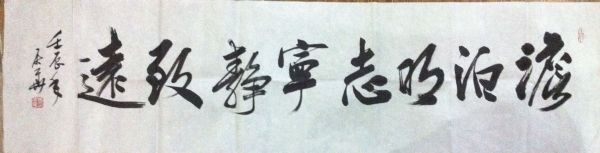 澹泊明志寧靜致遠
壬辰年